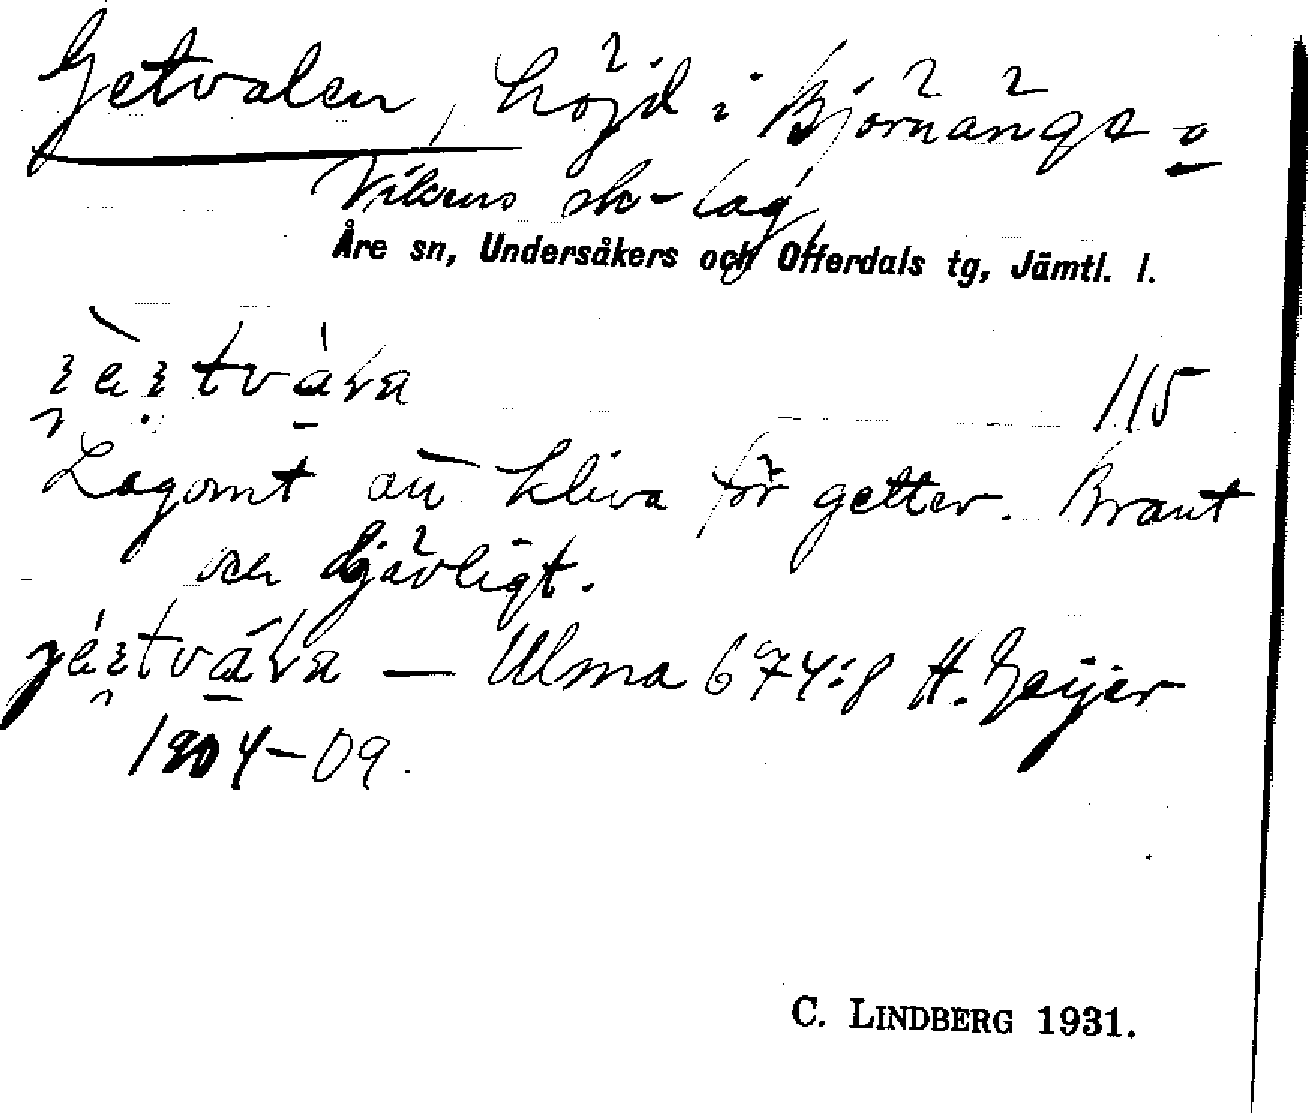 Getvalen, höjd i Björnänge o
Vikens sk-lag
Åre sn, Undersåkers och Offerdals tg, Jämtl. l.
115
Lagomt att kliva för getter. Brant
och djävligt.
— Ulma 674:8 H. Geijer
1904-09.
C. LINDBERG 1931.